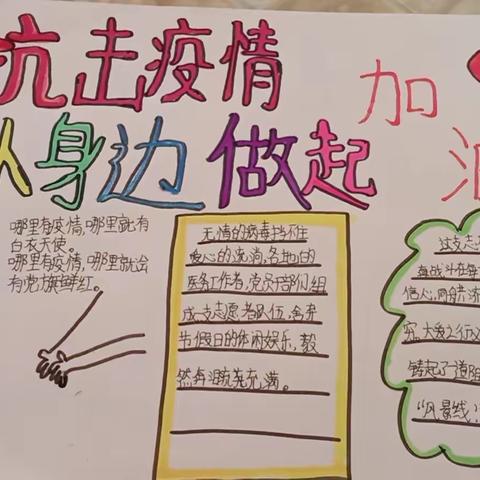 抗击疫情
从身边做起
加油
哪里有疫情,哪里就有
白衣天使。
哪里有疫情,哪里就会
有党旗鲜红。
无情的病毒挡不住
暖心的流淌,各地的
医务工作者,党员干部们组
成一支志愿者队伍,舍弃
节假日的休闲娱乐,毅
然奔
这支志
奋战在
信心,同舟济
大爱之行
铸起了道
“风景线